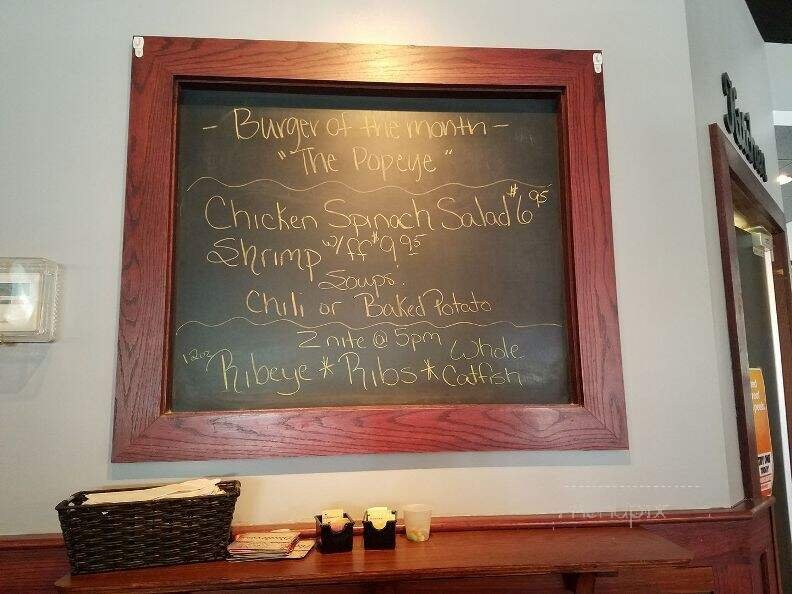 - Burger of the month -
"The Popeye"
Chicken Spinach Salad $6 95
Shrimp w/ff $9 95
Soups:
Chili or Baked Potato
2nite @ 5pm
12oz Ribeye * Ribs * Whole Catfish
menupix